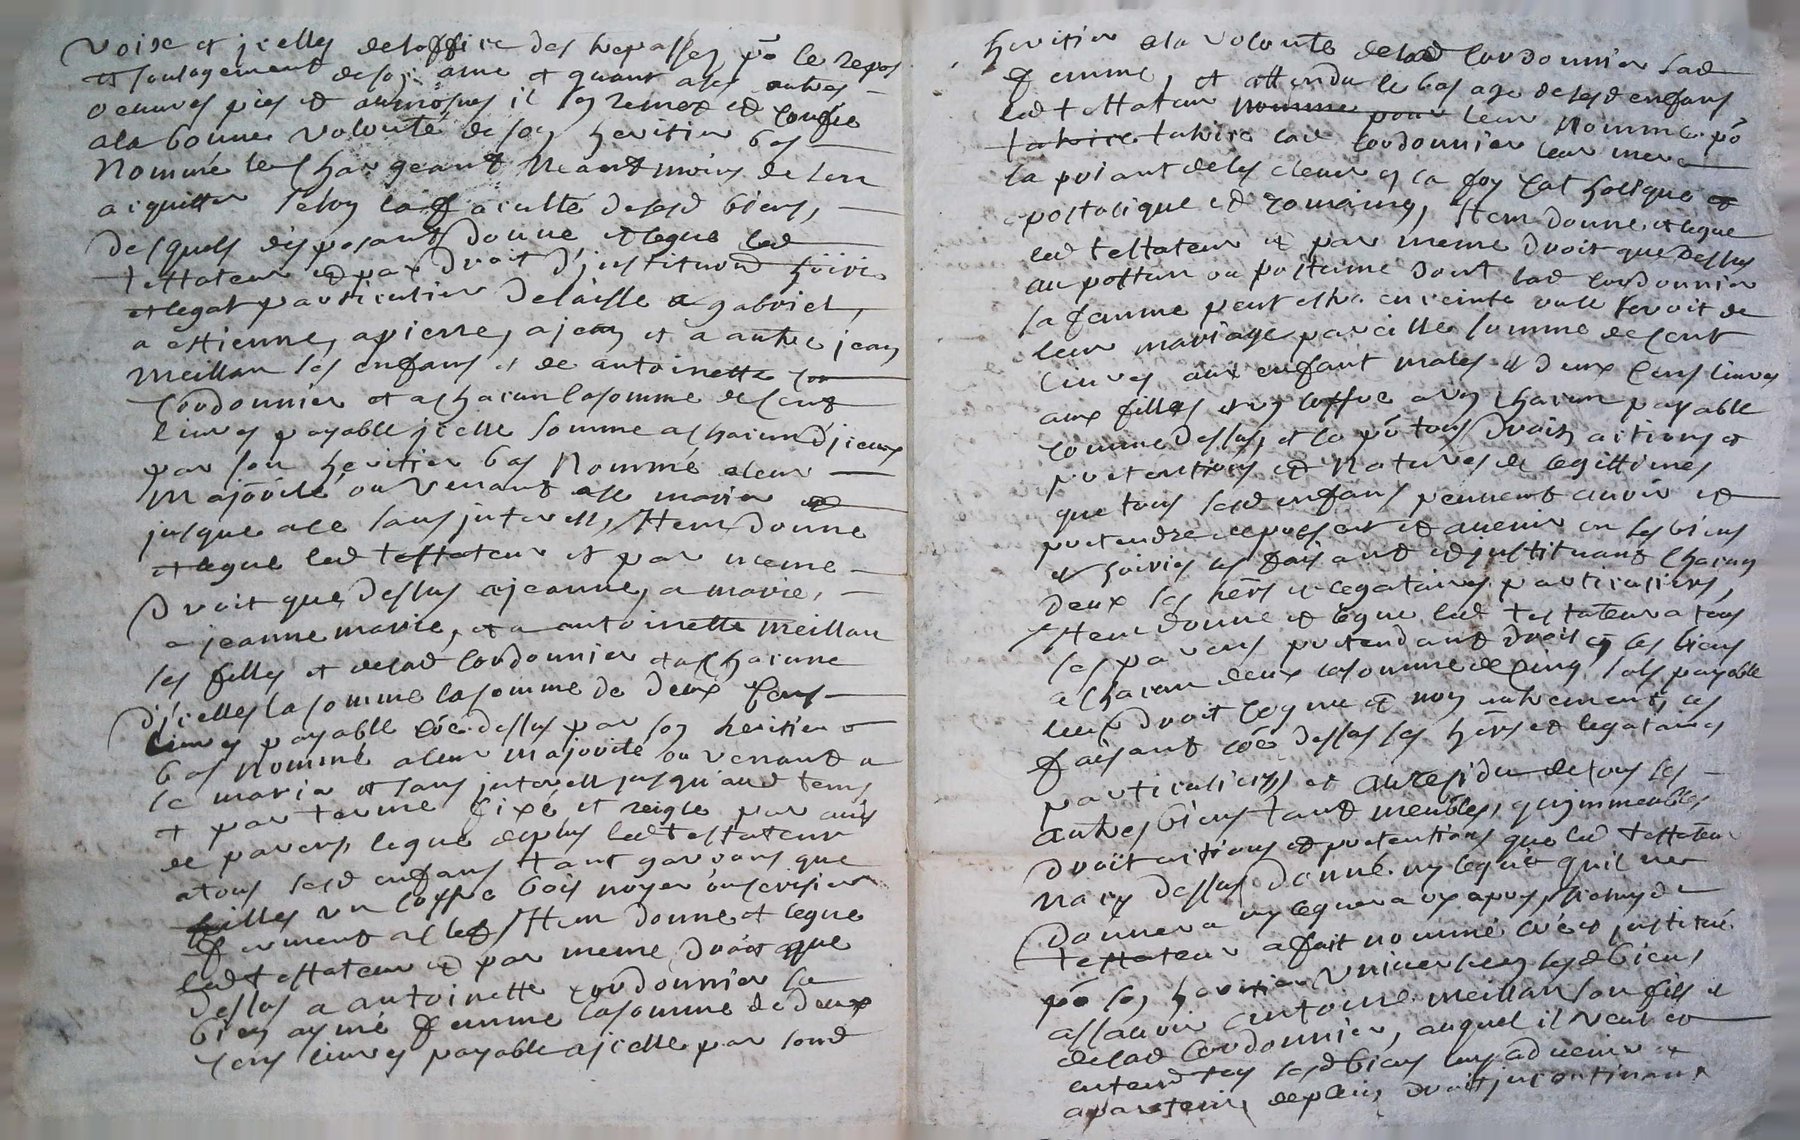 voise et jcelles de loffice des trepasses po le repos
et soulagement de son ame et quant a ses autres
oeuvres pies et aumosnes il sen remet et confie
a la bonne volonté de son heritier bas
nommé le chargeant neantmoins de sen
acquitter selon la faculté de sesd biens,
desquels disposant donne et legue led
testateur et par droit d'jnstitution hoirie
et legat particulier delaisse a gabriel,
a estienne, a pierre, a jean et a autre jean
meillan ses enfans et de antoinette
cordonnier et a chacun la somme de cent
livres payable jcelle somme a chacun d'jceux
par son heritier bas nommé a leur
majorité ou venant a se marier et
jusque a ce sans jnterest, Item donne
et legue led testateur et par meme
droit que dessus a jeanne, a marie,
a jeanne marie, et a antoinette meillan
ses filles et de lad cordonnier et a chacune
d'jcelles la somme la somme de deux cens
livres payable coe dessus par son heritier
bas nommé a leur majorité ou venant a
se marier et sans jnterest jusqu'aud tems
et par terme fixé et reigle par avis
de parens, legue de plus led testateur
a tous sesd enfans tant garcons que
filles un coffre bois noyer ou cerisier
ferment a clef, Item donne et legue
led testateur et par meme droit que
dessus a antoinette cordonnier sa
bien aymé femme la somme de deux
cens livres payable a jcelle par sond
heritier a la volonté de lad cordonnier sad
femme, et attendu le bas age de sesd enfans
led testateur nomme pour leur nomme po
tutrice tutrice lad cordonnier leur mere
la priant de les elever en la foy catholique
apostolique et romaine, Item donne et legue
led testateur et par meme droit que dessus
au posthume ou postume dont lad cordonnier
sa femme peut estre enceinte ou le seroit de
leur mariage pareille somme de cent
livres aux enfant males et deux cens livres
aux filles et un coffre a un chacun payable
comme dessus, et ce po tous droits actions et
pretentions et natures de legittimes
que tous sesd enfans peuvent avoir et
pretendre a present et a venir en ses biens
et hoiries les faisant et jnstituant chacun
deux ses hers et legataires particuliers,
Item donne et legue led testateur a tous
ses parens pretendant droit en ses biens
a chacun deux la somme de cinq sols payable
leur droit cognu et non autrement, les
faisant coe dessus ses hers et legataires
particuliers, et au residu de tous ses
autres biens tant meubles, qu jmmeubles
droit actions et pretentions que led testateur
na cy dessus donné ny legué qu'il ne
donnera ny leguera cy apres,
testateur a fait nommé créé et jnstitué
po son heritier universel en sesd biens
assavoir antoine meillan son fils et
de lad cordonnier, auquel il veut et
entend tous sesd biens luy advenir et
apartenir de plein droit jncontinant